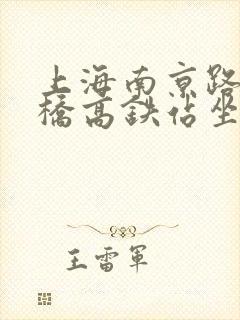 上海南京路
橋高鉄佔坐
王雷軍